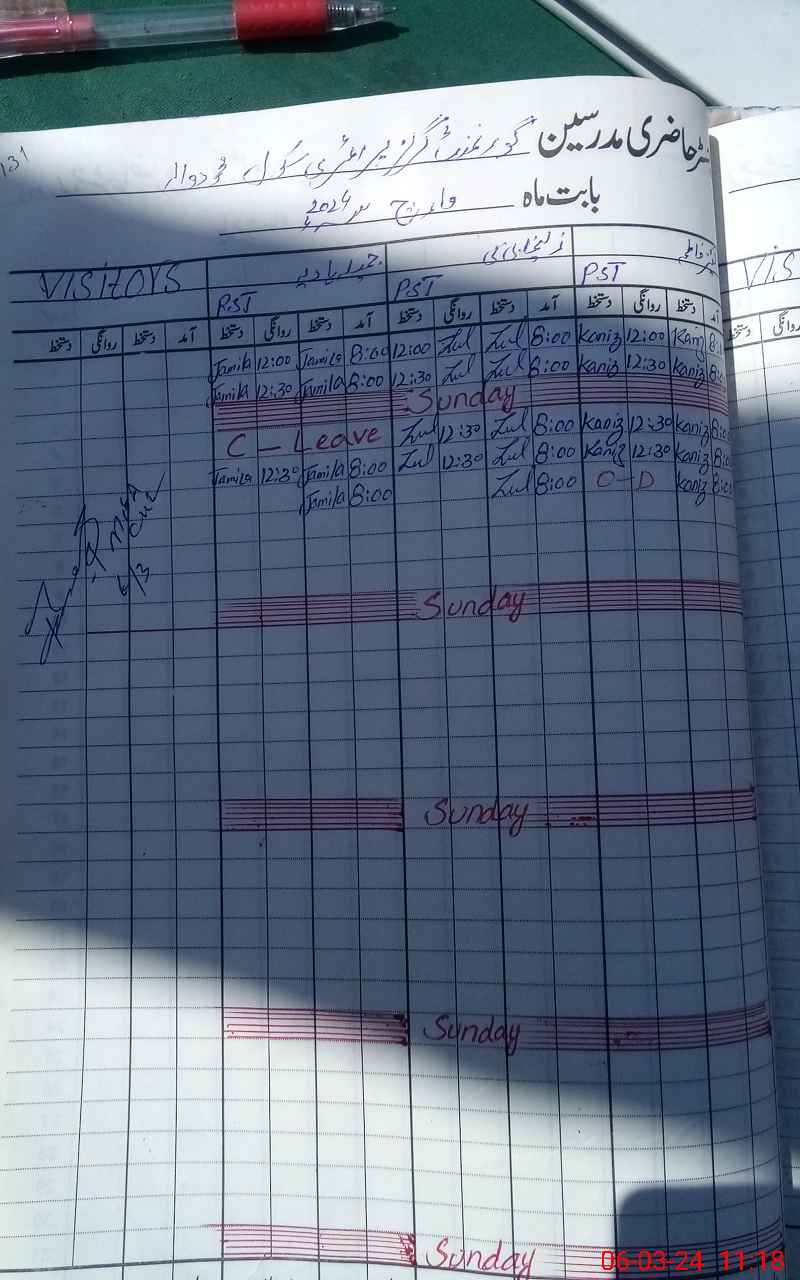 131
رجسٹر حاضری مدرسین گورنمنٹ گرلز پرائمری سکول
بابت ماہ مارچ 2024
VISITORS
زلیخا بی بی
VIS
PST PST PST
دستخط روانگی دستخط آمد دستخط روانگی دستخط آمد دستخط روانگی دستخط آمد دستخط روانگی دستخط آمد
Jamila 12:00 Jamila 8:00 12:00 Zul Zul 8:00 Kaniz 12:00 Kaniz 8:
Jamila 12:30 Jamila 8:00 12:30 Zul Zul 8:00 Kaniz 12:30 Kaniz 8:
Sunday
C - Leave Zul 12:30 Zul 8:00 Kaniz 12:30 Kaniz 8:0
Jamila 12:30 Jamila 8:00 Zul 12:30 Zul 8:00 Kaniz 12:30 Kaniz 8:0
Jamila 8:00 Zul 8:00 O-D Kaniz 8:00
6/3
Sunday
Sunday
Sunday
Sunday
06-03-24 11:18